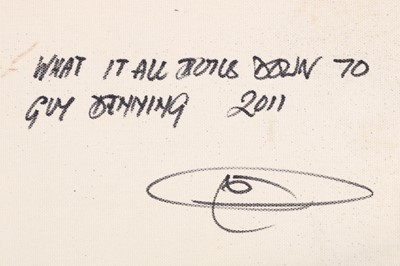 WHAT IT ALL BOILS DOWN TO
GUY DENNING 2011